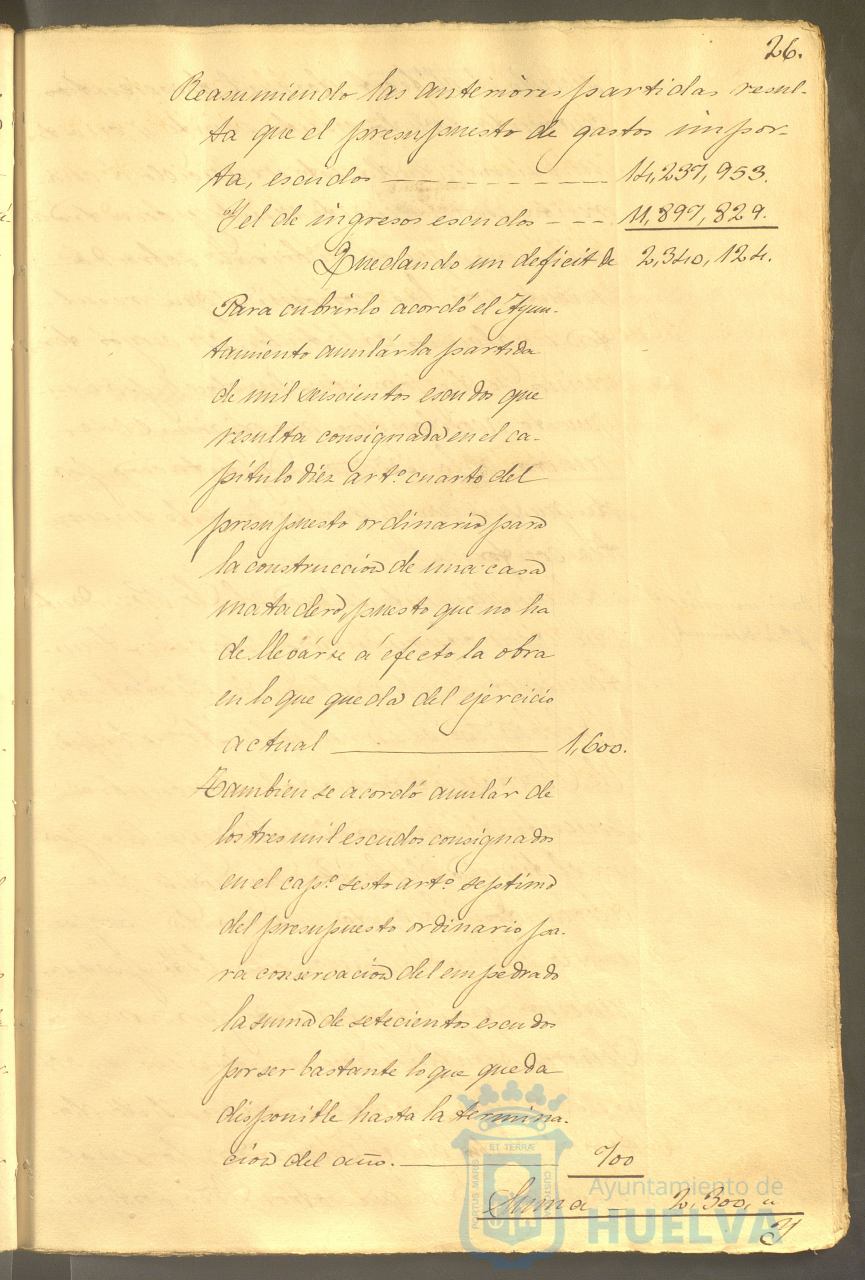 26.
Reasumiendo las anteriores partidas resul-
ta que el presupuesto de gastos impor-
ta, escudos — — — — — — 14,237,953.
Y el de ingresos escudos — — — 11,897,829.
Quedando un deficit de 2,340,124.
Para cubrirlo acordó el Ayun-
tamiento anulár la partida
de mil seiscientos escudos que
resulta consignada en el ca-
pítulo diez art.º cuarto del
presupuesto ordinario para
la construccion de una casa
matadero, puesto que no ha
de llevárse á efecto la obra
en lo que queda del ejercicio
actual ———— 1,600.
Tambien se acordó anulár de
los tres mil escudos consignados
en el cap.º sesto art.º septimo
del presupuesto ordinario pa-
ra conservacion del empedrado
la suma de setecientos escudos
por ser bastante lo que queda
disponible hasta la termina-
cion del año. ———— 700
Suma 2,300, "
Y
PORTUS MARIS
ET TERRÆ
CUSTODIA
Ayuntamiento de
HUELVA